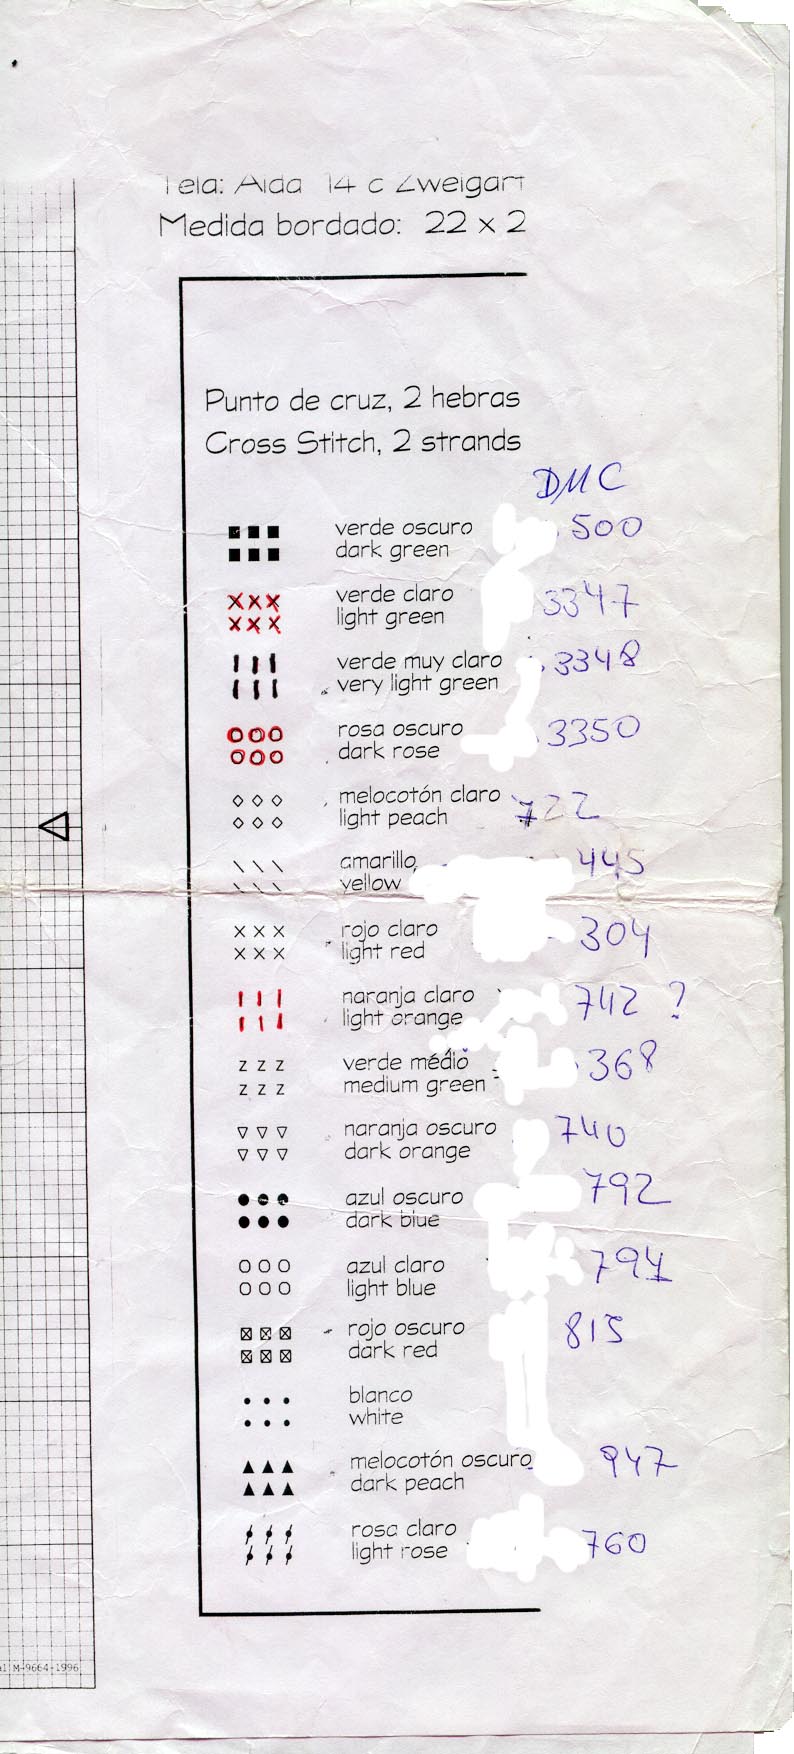 Tela: Aida 14 c Zweigart
Medida bordado: 22 x 2
Punto de cruz, 2 hebras
Cross Stitch, 2 strands
DMC
verde oscuro 500
dark green
verde claro 3347
light green
verde muy claro 3348
very light green
rosa oscuro 3350
dark rose
melocotón claro 722
light peach
amarillo 445
yellow
rojo claro 304
light red
naranja claro 742 ?
light orange
verde médio 368
medium green
naranja oscuro 740
dark orange
azul oscuro 792
dark blue
azul claro 794
light blue
rojo oscuro 815
dark red
blanco
white
melocotón oscuro 947
dark peach
rosa claro 760
light rose
M-9664-1996